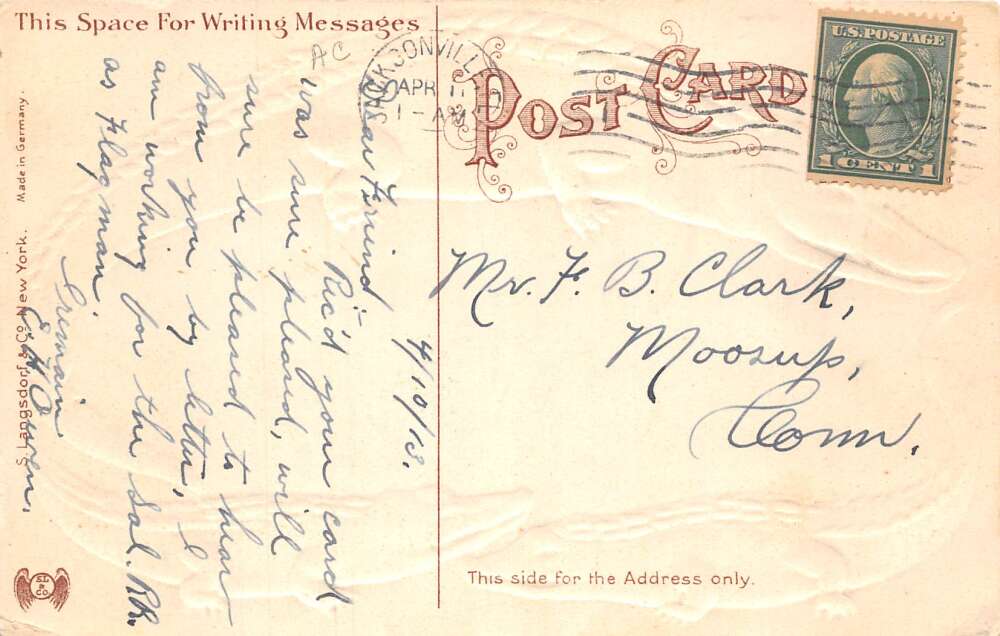 This Space For Writing Messages
AC
JACKSONVILLE
APR 11
1-AM
POST CARD
U.S. POSTAGE
1 CENT 1
4/10/13.
Dear Friend–
Rec'd your card
was sure pleased, will
sure be pleased to hear
from you by letter, I
am working for the Sal. RR.
as Flagman.
I remain
Mr. F. B. Clark,
Moosup,
Conn.
This side for the Address only.
S. Langsdorf & Co. New York. Made in Germany.
SL & Co.